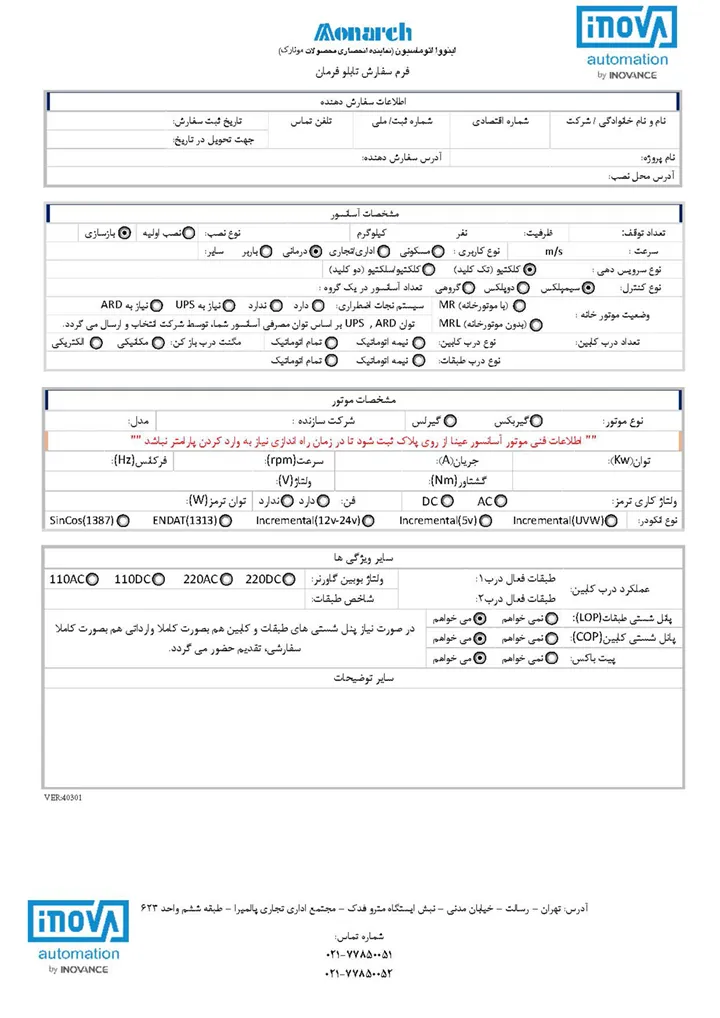 Monarch
اینووا اتوماسیون (نماینده انحصاری محصولات مونارک)
فرم سفارش تابلو فرمان
inovA
automation
by INOVANCE
اطلاعات سفارش دهنده
نام و نام خانوادگی / شرکت شماره اقتصادی شماره ثبت/ ملی تلفن تماس تاریخ ثبت سفارش:
جهت تحویل در تاریخ:
نام پروژه: آدرس سفارش دهنده:
آدرس محل نصب:
مشخصات آسانسور
تعداد توقف: ظرفیت: نفر کیلوگرم نوع نصب: نصب اولیه بازسازی
سرعت : m/s نوع کاربری : مسکونی اداری/تجاری درمانی باربر سایر:
نوع سرویس دهی : کلکتیو (تک کلید) کلکتیو/سلکتیو (دو کلید)
نوع کنترل: سیمپلکس دوپلکس گروهی تعداد آسانسور در یک گروه :
وضعیت موتور خانه : MR (با موتورخانه) سیستم نجات اضطراری: دارد ندارد نیاز به UPS نیاز به ARD
MRL (بدون موتورخانه) توان UPS , ARD بر اساس توان مصرفی آسانسور شما، توسط شرکت انتخاب و ارسال می گردد.
تعداد درب کابین: نوع درب کابین: نیمه اتوماتیک تمام اتوماتیک مگنت درب باز کن: مکانیکی الکتریکی
نوع درب طبقات: نیمه اتوماتیک تمام اتوماتیک
مشخصات موتور
نوع موتور: گیربکس گیرلس شرکت سازنده : مدل:
"" اطلاعات فنی موتور آسانسور عینا از روی پلاک ثبت شود تا در زمان راه اندازی نیاز به وارد کردن پارامتر نباشد ""
توان(Kw): جریان(A): سرعت(rpm): فرکانس(Hz):
گشتاور(Nm): ولتاژ(V):
ولتاژ کاری ترمز: AC DC فن: دارد ندارد توان ترمز(W):
نوع انکودر: Incremental(UVW) Incremental(5v) Incremental(12v-24v) ENDAT(1313) SinCos(1387)
سایر ویژگی ها
عملکرد درب کابین: طبقات فعال درب۱: ولتاژ بوبین گاورنر: 220DC 220AC 110DC 110AC
طبقات فعال درب۲: شاخص طبقات:
پنل شستی طبقات(LOP): نمی خواهم می خواهم
پانل شستی کابین(COP): نمی خواهم می خواهم
پیت باکس: نمی خواهم می خواهم
در صورت نیاز پنل شستی های طبقات و کابین هم بصورت کاملا وارداتی هم بصورت کاملا
سفارشی، تقدیم حضور می گردد.
سایر توضیحات
VER:40301
آدرس: تهران – رسالت – خیابان مدنی – نبش ایستگاه مترو فدک – مجتمع اداری تجاری پالمیرا – طبقه ششم واحد ۶۲۳
شماره تماس:
۰۲۱-۷۷۸۵۰۰۵۱
۰۲۱-۷۷۸۵۰۰۵۲
inovA
automation
by INOVANCE